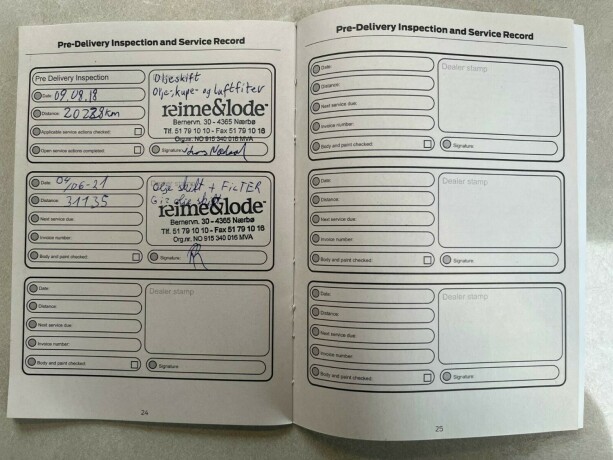 Pre-Delivery Inspection and Service Record
Pre Delivery Inspection
Date: 09.08.18
Distance: 20288km
Applicable service actions checked:
Open service actions completed:
Oljeskift
Olje-, kupe- og luftfilter
reime&lode
Bernervn. 30 - 4365 Nærbø
Tlf. 51 79 10 10 - Fax 51 79 10 16
Org.nr. NO 915 340 016 MVA
Signature:
Date: 04/06-21
Distance: 31135
Next service due:
Invoice number:
Body and paint checked:
Olje skift + FiLTER
reime&lode
Bernervn. 30 - 4365 Nærbø
Tlf. 51 79 10 10 - Fax 51 79 10 16
Org.nr. NO 915 340 016 MVA
Signature:
Date:
Distance:
Next service due:
Invoice number:
Body and paint checked:
Dealer stamp
Signature:
24
Pre-Delivery Inspection and Service Record
Date:
Distance:
Next service due:
Invoice number:
Body and paint checked:
Dealer stamp
Signature:
Date:
Distance:
Next service due:
Invoice number:
Body and paint checked:
Dealer stamp
Signature:
Date:
Distance:
Next service due:
Invoice number:
Body and paint checked:
Dealer stamp
Signature:
25